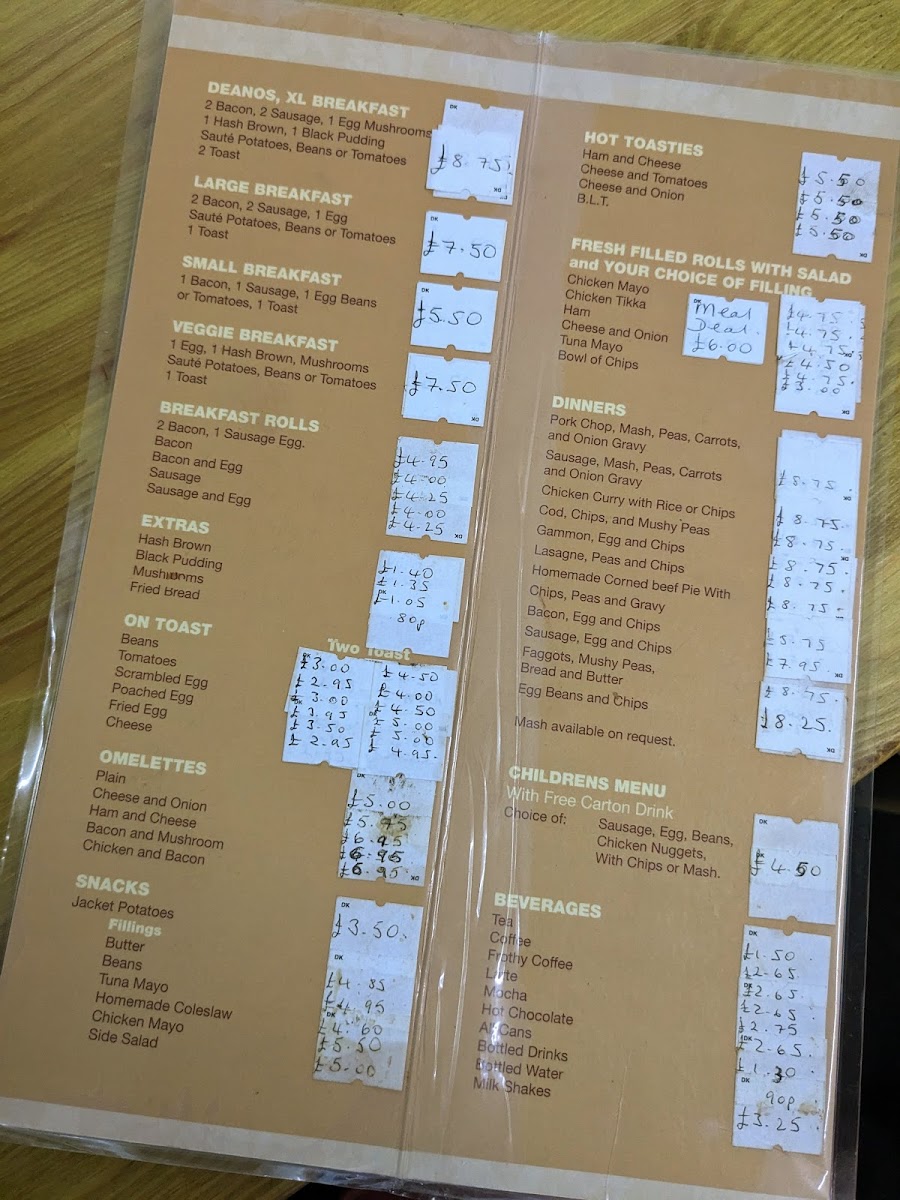 DEANOS, XL BREAKFAST
2 Bacon, 2 Sausage, 1 Egg Mushrooms
1 Hash Brown, 1 Black Pudding
Sauté Potatoes, Beans or Tomatoes
2 Toast
£8.75
LARGE BREAKFAST
2 Bacon, 2 Sausage, 1 Egg
Sauté Potatoes, Beans or Tomatoes
1 Toast
£7.50
SMALL BREAKFAST
1 Bacon, 1 Sausage, 1 Egg Beans
or Tomatoes, 1 Toast
£5.50
VEGGIE BREAKFAST
1 Egg, 1 Hash Brown, Mushrooms
Sauté Potatoes, Beans or Tomatoes
1 Toast
£7.50
BREAKFAST ROLLS
2 Bacon, 1 Sausage Egg. £4.95
Bacon £4.00
Bacon and Egg £4.25
Sausage £4.00
Sausage and Egg £4.25
EXTRAS
Hash Brown £1.40
Black Pudding £1.35
Mushrooms £1.05
Fried Bread 80p
ON TOAST Two Toast
Beans £3.00 £4.50
Tomatoes £2.95 £4.00
Scrambled Egg £3.00 £4.50
Poached Egg £3.95 £5.00
Fried Egg £3.50 £5.00
Cheese £2.95 £4.95
OMELETTES
Plain £5.00
Cheese and Onion £5.75
Ham and Cheese £6.95
Bacon and Mushroom £6.95
Chicken and Bacon £6.95
SNACKS
Jacket Potatoes
Fillings
Butter £3.50
Beans
Tuna Mayo £4.85
Homemade Coleslaw £4.95
Chicken Mayo £4.60
Side Salad £5.50
£5.00
HOT TOASTIES
Ham and Cheese £5.50
Cheese and Tomatoes £5.50
Cheese and Onion £5.50
B.L.T. £5.50
FRESH FILLED ROLLS WITH SALAD
and YOUR CHOICE OF FILLING
Chicken Mayo £4.75
Chicken Tikka £4.75
Ham £4.75
Cheese and Onion £4.50
Tuna Mayo £4.75
Bowl of Chips £3.00
Meal
Deal
£6.00
DINNERS
Pork Chop, Mash, Peas, Carrots,
and Onion Gravy £8.75
Sausage, Mash, Peas, Carrots
and Onion Gravy £8.75
Chicken Curry with Rice or Chips £8.75
Cod, Chips, and Mushy Peas £8.75
Gammon, Egg and Chips £8.75
Lasagne, Peas and Chips £8.75
Homemade Corned beef Pie With
Chips, Peas and Gravy
Bacon, Egg and Chips £7.95
Sausage, Egg and Chips
Faggots, Mushy Peas,
Bread and Butter £8.75
Egg Beans and Chips £8.25
Mash available on request.
CHILDRENS MENU
With Free Carton Drink
Choice of: Sausage, Egg, Beans,
Chicken Nuggets,
With Chips or Mash.
£4.50
BEVERAGES
Tea £1.50
Coffee £2.65
Frothy Coffee £2.65
Latte £2.65
Mocha £2.75
Hot Chocolate £2.65
All Cans £1.30
Bottled Drinks
Bottled Water 90p
Milk Shakes £3.25